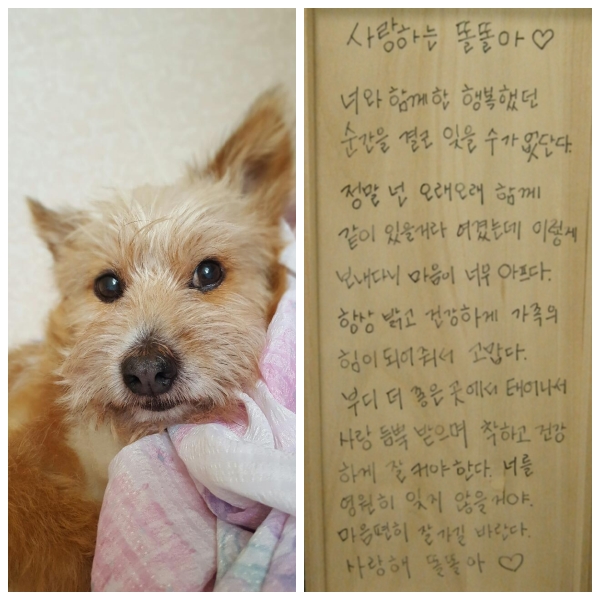 사랑하는 똘똘아♡
너와 함께한 행복했던
순간을 결코 잊을 수가 없단다.
정말 넌 오래오래 함께
같이 있을거라 여겼는데 이렇게
보내다니 마음이 너무 아프다.
항상 밝고 건강하게 가족의
힘이 되어줘서 고맙다.
부디 더 좋은 곳에서 태어나서
사랑 듬뿍 받으며 착하고 건강
하게 잘 커야 한다. 너를
영원히 잊지 않을거야.
마음편히 잘 가길 바란다.
사랑해 똘똘아 ♡